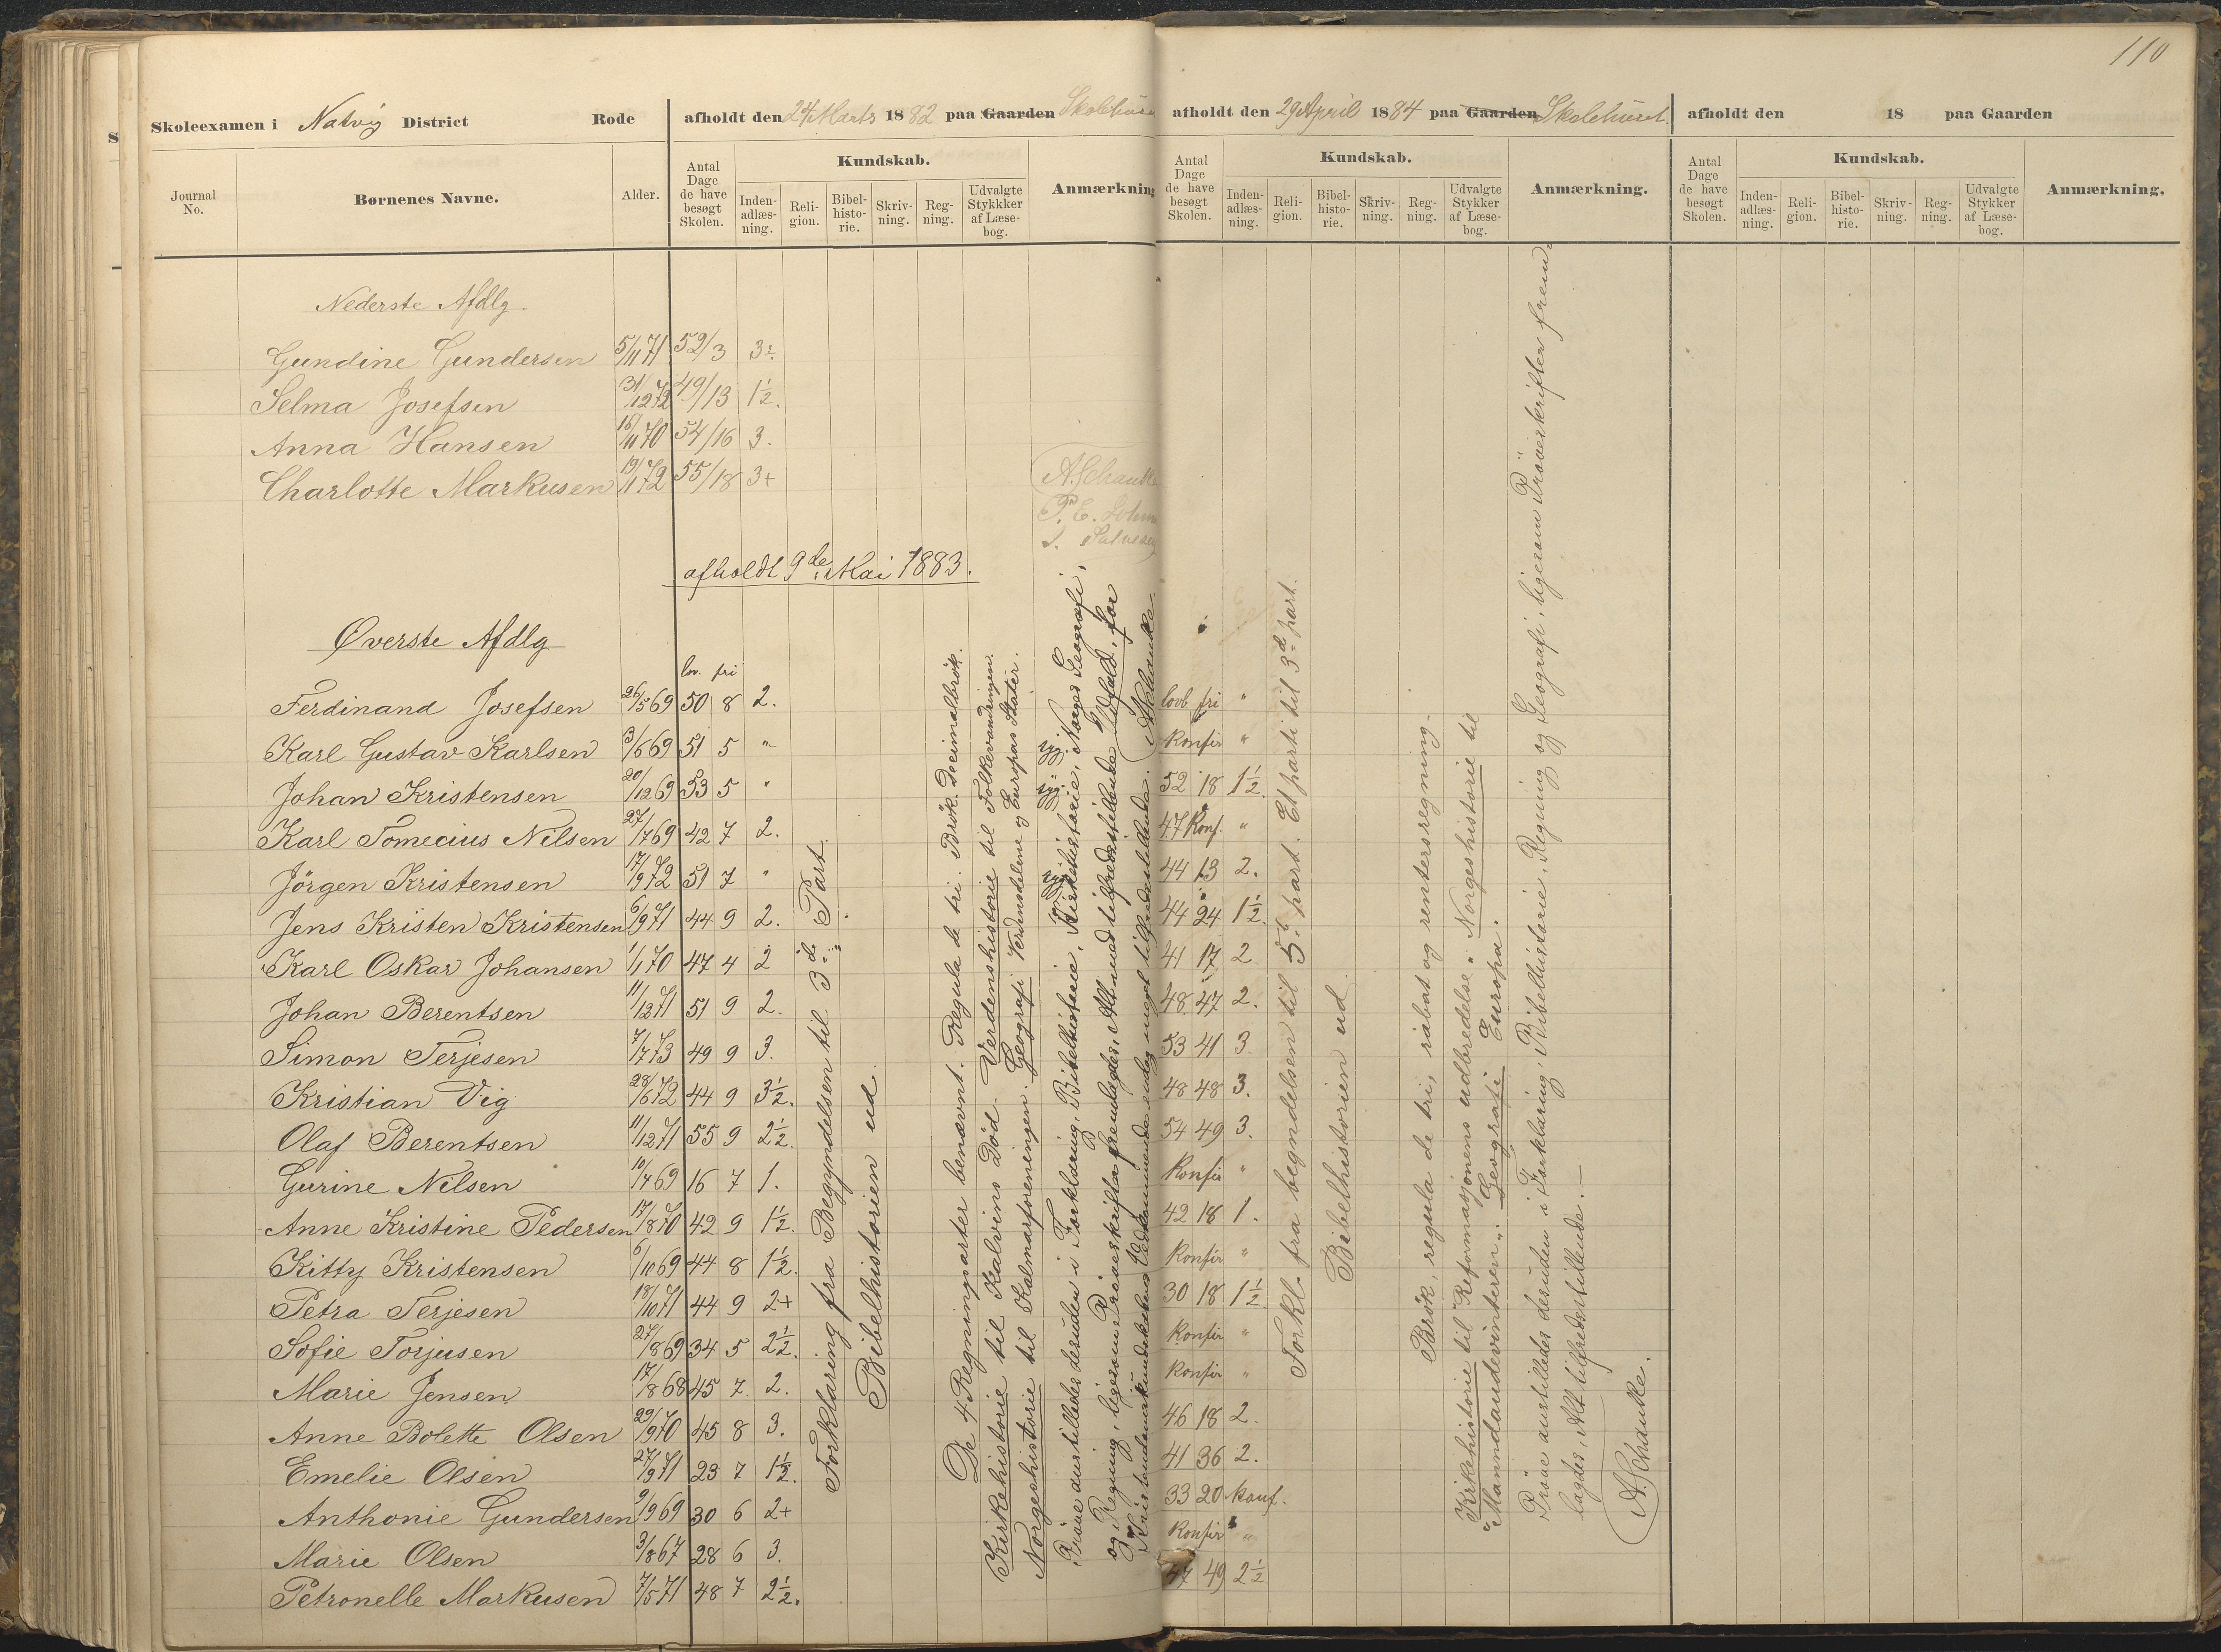 110
Skoleexamen i Natvig District Rode
afholdt den 24 Marts 1882 paa Gaarden Skolehuset
Journal No.
Børnenes Navne.
Alder.
Antal Dage de have besøgt Skolen.
Kundskab.
Inden-adlæs-ning.
Reli-gion.
Bibel-histo-rie.
Skriv-ning.
Reg-ning.
Udvalgte Stykkker af Læse-bog.
Anmærkning
afholdt den 29 April 1884 paa Gaarden Skolehuset.
Antal Dage de have besøgt Skolen.
Kundskab.
Inden-adlæs-ning.
Reli-gion.
Bibel-histo-rie.
Skriv-ning.
Reg-ning.
Udvalgte Stykker af Læse-bog.
Anmærkning.
afholdt den 18 paa Gaarden
Antal Dage de have besøgt Skolen.
Kundskab.
Inden-adlæs-ning.
Reli-gion.
Bibel-histo-rie.
Skriv-ning.
Reg-ning.
Udvalgte Stykker af Læse-bog.
Anmærkning.
Nederste Afdlg.
Gundine Gundersen 5/11 71 52/3 3
Selma Josefsen 31/12 72 49/13 1½.
Anna Hansen 18/11 70 54/16 3.
Charlotte Markusen 19/1 72 55/18 3+
A. Schanke
P. E.
afholdt 9de Mai 1883.
Øverste Afdlg
lov. fri
Ferdinand Josefsen 26/5 69 50 8 2. lovb fri "
Karl Gustav Karlsen 3/6 69 51 5 " Konfir "
Johan Kristensen 20/12 69 53 5 " 52 18 1½.
Karl Tomecius Nilsen 27/7 69 42 7 2. 47 Konf. "
Jörgen Kristensen 17/9 72 51 7 " 44 13 2.
Jens Kristen Kristensen 6/9 71 44 9 2. 44 24 1½.
Karl Oskar Johansen 1/1 70 47 4 2 41 17 2
Johan Berentsen 11/12 71 51 9 2. 48 47 2.
Simon Terjesen 7/7 73 49 9 3. 53 41 3.
Kristian Vig 28/6 72 44 9 3½. 48 48 3.
Olaf Berentsen 11/12 71 55 9 2½. 54 49 3.
Gurine Nilsen 10/4 69 16 7 1. Konfir "
Anne Kristine Pedersen 17/8 70 42 9 1½. 42 18 1.
Kitty Kristensen 6/10 69 44 8 1½. Konfir "
Petra Terjesen 18/10 71 44 9 2+ 30 18 1½
Sofie Torjusen 27/8 69 34 5 2½. Konfir "
Marie Jensen 17/8 68 45 7 2. Konfir "
Anne Bolette Olsen 29/9 70 45 8 3. 46 18 2.
Emelie Olsen 27/9 71 23 7 1½. 41 36 2.
Anthonie Gundersen 9/9 69 30 6 2+ 33 20 konf.
Marie Olsen 3/8 67 28 6 3. Konfir "
Petronelle Markusen 7/5 71 48 7 2½. 47 49 2½
Forklaring fra Begyndelsen til 3de Part.
Bibelhistorien ud.
De 4 Regningsarter benævnt. Regula de tri. Brök. Decimalbrök.
Kirkehistorie til Kalvins Död. Verdenshistorie til Folkevandringen.
Norgeshistorie til Kalmarforeningen. Geografi Verdensdelene og Europas Stater.
Pröve anstilledes desuden i Forklaring, Bibelhistorie, Kirkehistorie, Norges Geografi,
og Regning, ligesom Pröveskrifter fremlagdes, Alt med tilfredsstillende Udfald, for
Kristendomskundskabens Vedkommende endog meget tilfredsstillende. A Schanke
syg.
syg.
syg.
Forkl. fra begyndelsen til 5te part. Et parti til 3de part.
Bibelhistorien ud.
Brök, regula de tri, rabat og rentersregning.
Kirkehistorie til "Reformasjonens udbredelse". Norgeshistorie til
"Manndaudevinteren". Geografi Europa.
Pröve anstilledes desuden i Forklaring, Bibelhistorie, Regning og Geografi, ligesom Pröveskrifter frem-
lagdes, Alt tilfredsstillende. —
A. Schanke.